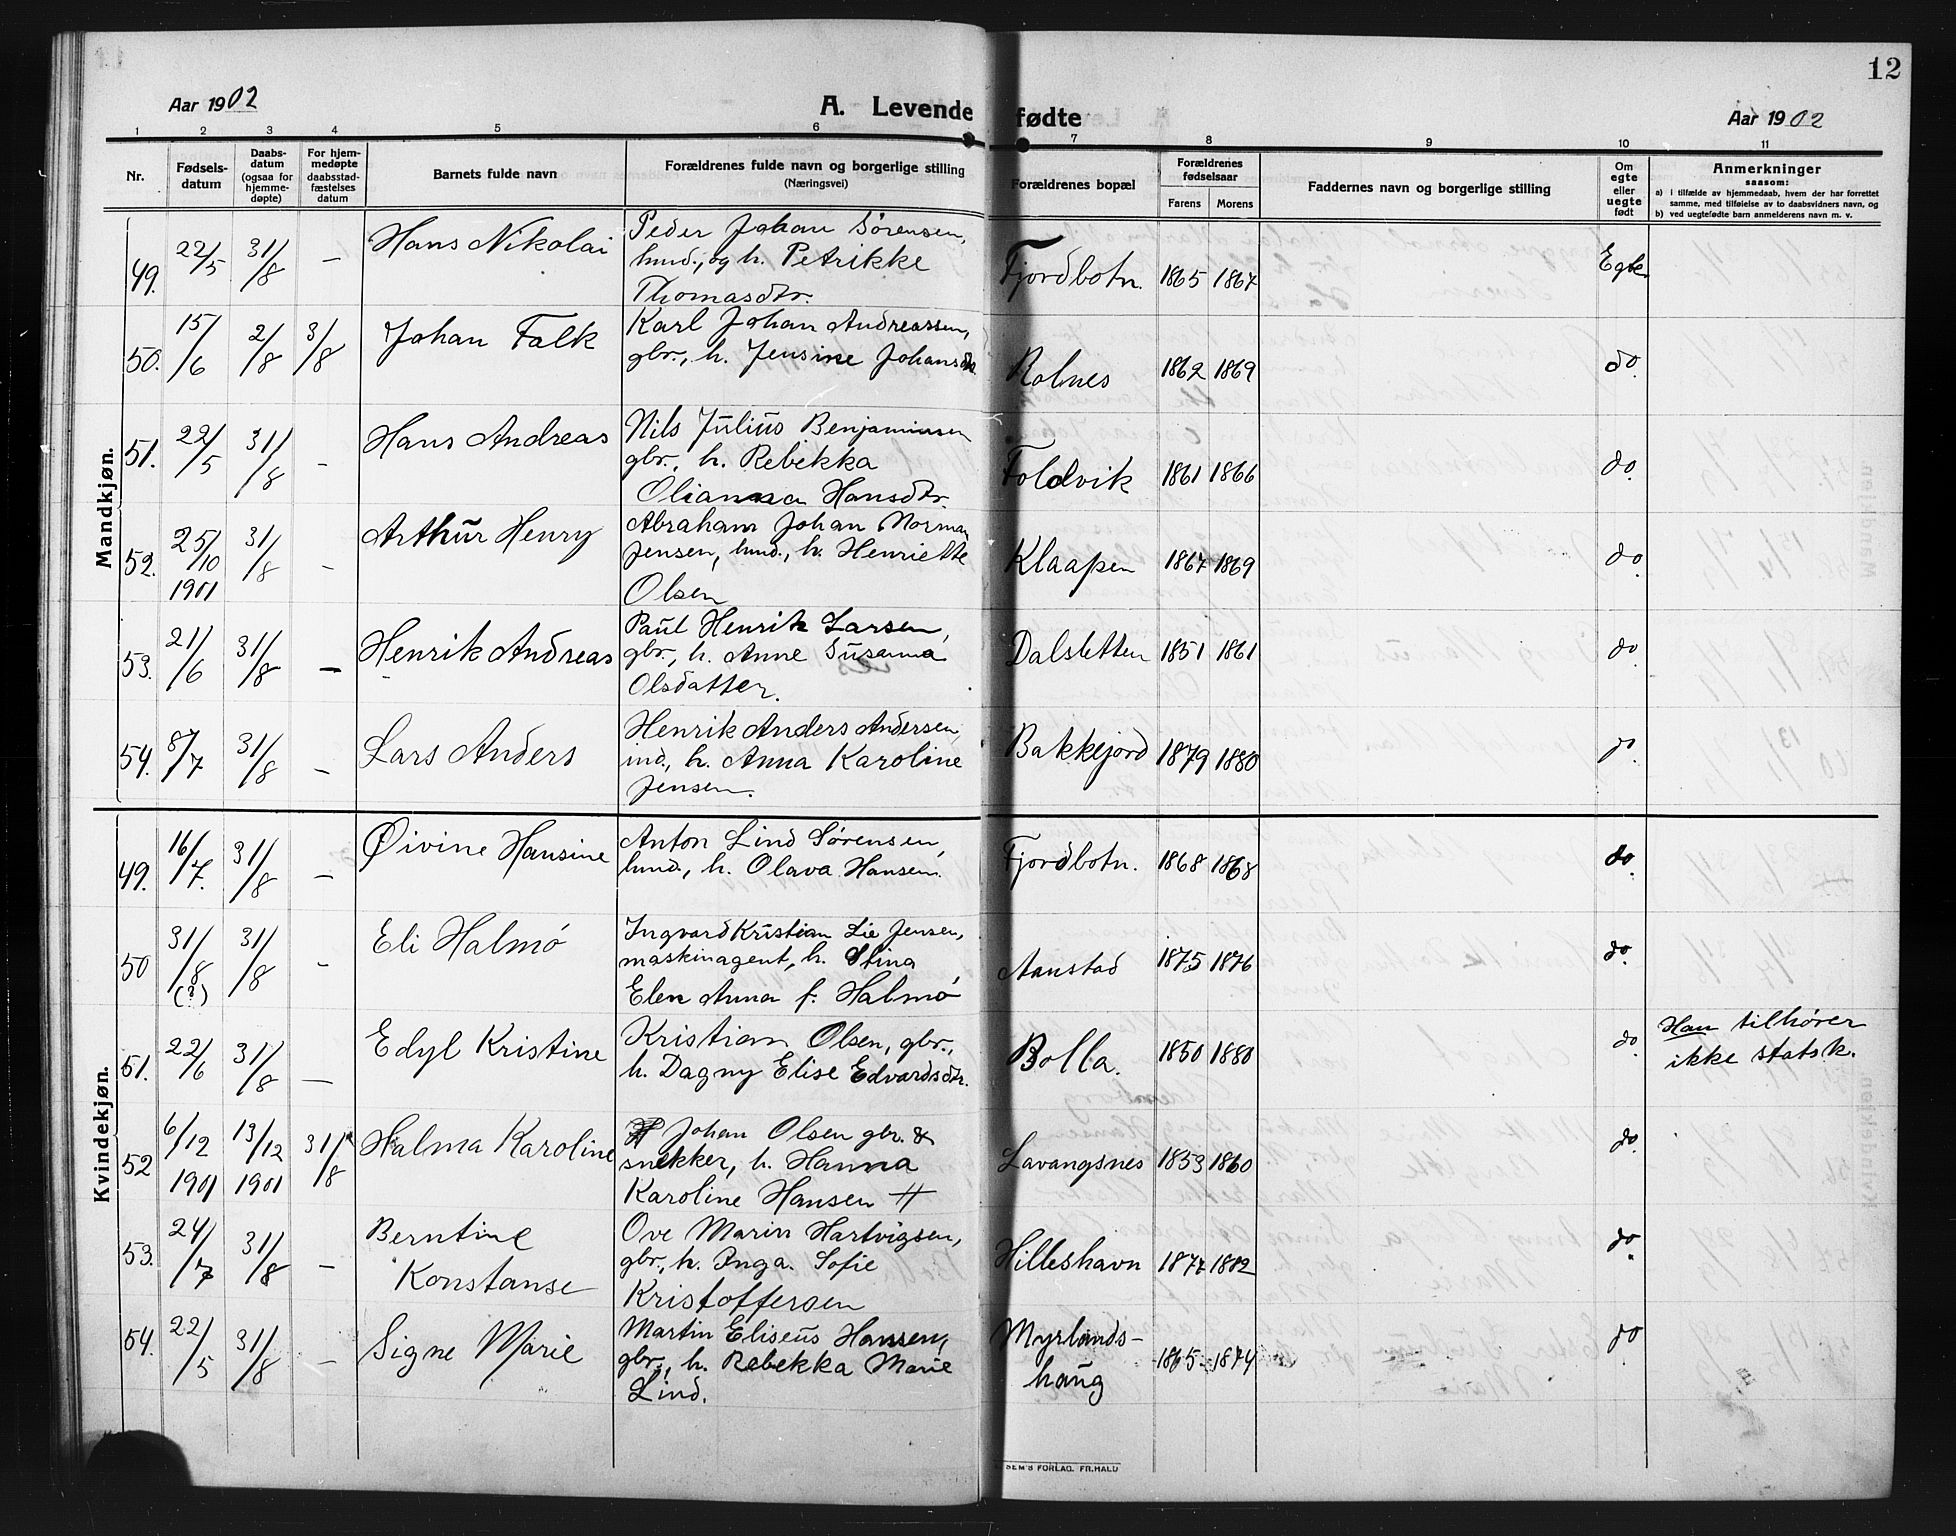 12
Aar 1902
A. Levende fødte
Aar 1902
1 2 3 4 5 6 7 8 9 10 11
Nr.
Fødsels-
datum
Daabs-
datum
(ogsaa for
hjemme-
døpte)
For hjem-
medøpte
daabsstad-
fæstelses
datum
Barnets fulde navn
Forældrenes fulde navn og borgerlige stilling
(Næringsvei)
Forældrenes bopæl
Forældrenes
fødselsaar
Farens Morens
Faddernes navn og borgerlige stilling
Om
egte
eller
uegte
født
Anmerkninger
saasom:
a) i tilfælde av hjemmedaab, hvem der har forrettet
samme, med tilføielse av to daabsvidners navn, og
b) ved uegtefødte barn anmelderens navn m. v.
Mandkjøn.
49. 22/5 31/8 – Hans Nikolai Peder Johan Sørensen,
hmd., og h. Petrikke
Thomasdtr. Fjordbotn. 1865 1867 Egte
50. 15/6 2/8 3/8 Johan Falk Karl Johan Andreassen,
gbr., h. Jensine Johansdtr. Rolnes 1862 1869 do.
51. 22/5 31/8 – Hans Andreas Nils Julius Benjaminsen
gbr., h. Rebekka
Olianna Hansdtr. Foldvik 1861 1866 do.
52. 25/10 1901 31/8 – Arthur Henry Abraham Johan Norman
Jensen, hmd., h. Henriette
Olsen Klaapen 1867 1869 do.
53. 21/6 31/8 – Henrik Andreas Paul Henrik Larsen,
gbr., h. Anne Susanna
Olsdatter. Dalsletten 1851 1861 do.
54. 8/7 31/8 – Lars Anders Henrik Anders Andersen,
ind., h. Anna Karoline
Jensen. Bakkejord 1879 1880 do.
Kvindekjøn.
49. 16/7. 31/8 – Øivine Hansine Anton Lind Sørensen,
hmd., h. Olava Hansen. Fjordbotn. 1868 1868 do.
50 31/8 (?) 31/8 – Eli Halmø Ingvard Kristian Lie Jensen,
maskinagent, h. Stina
Elen Anna f. Halmø Aanstad 1875 1876 do.
51. 22/6 31/8 – Edyl Kristine Kristian Olsen, gbr.,
h. Dagny Elise Edvardsdtr. Bolla. 1850 1880 do. Han tilhører
ikke statsk.
52 6/12 1901 13/12 1901 31/8 Halma Karoline Johan Olsen gbr. &
snekker, h. Hanna
Karoline Hansen Lavangsnes 1853 1860 do.
53. 24/7 31/8 – Berntine
Konstanse Ove Marin Hartvigsen,
gbr., h. Inga. Sofie
Kristoffersen Hilleshavn 1877 1882 do.
54. 22/5 31/8 – Signe Marie Martin Eliseus Hansen,
gbr., h. Rebekka Marie
Lind. Myrlands-
haug 1865 1874 do
SEM'S FORLAG. FR.HALD